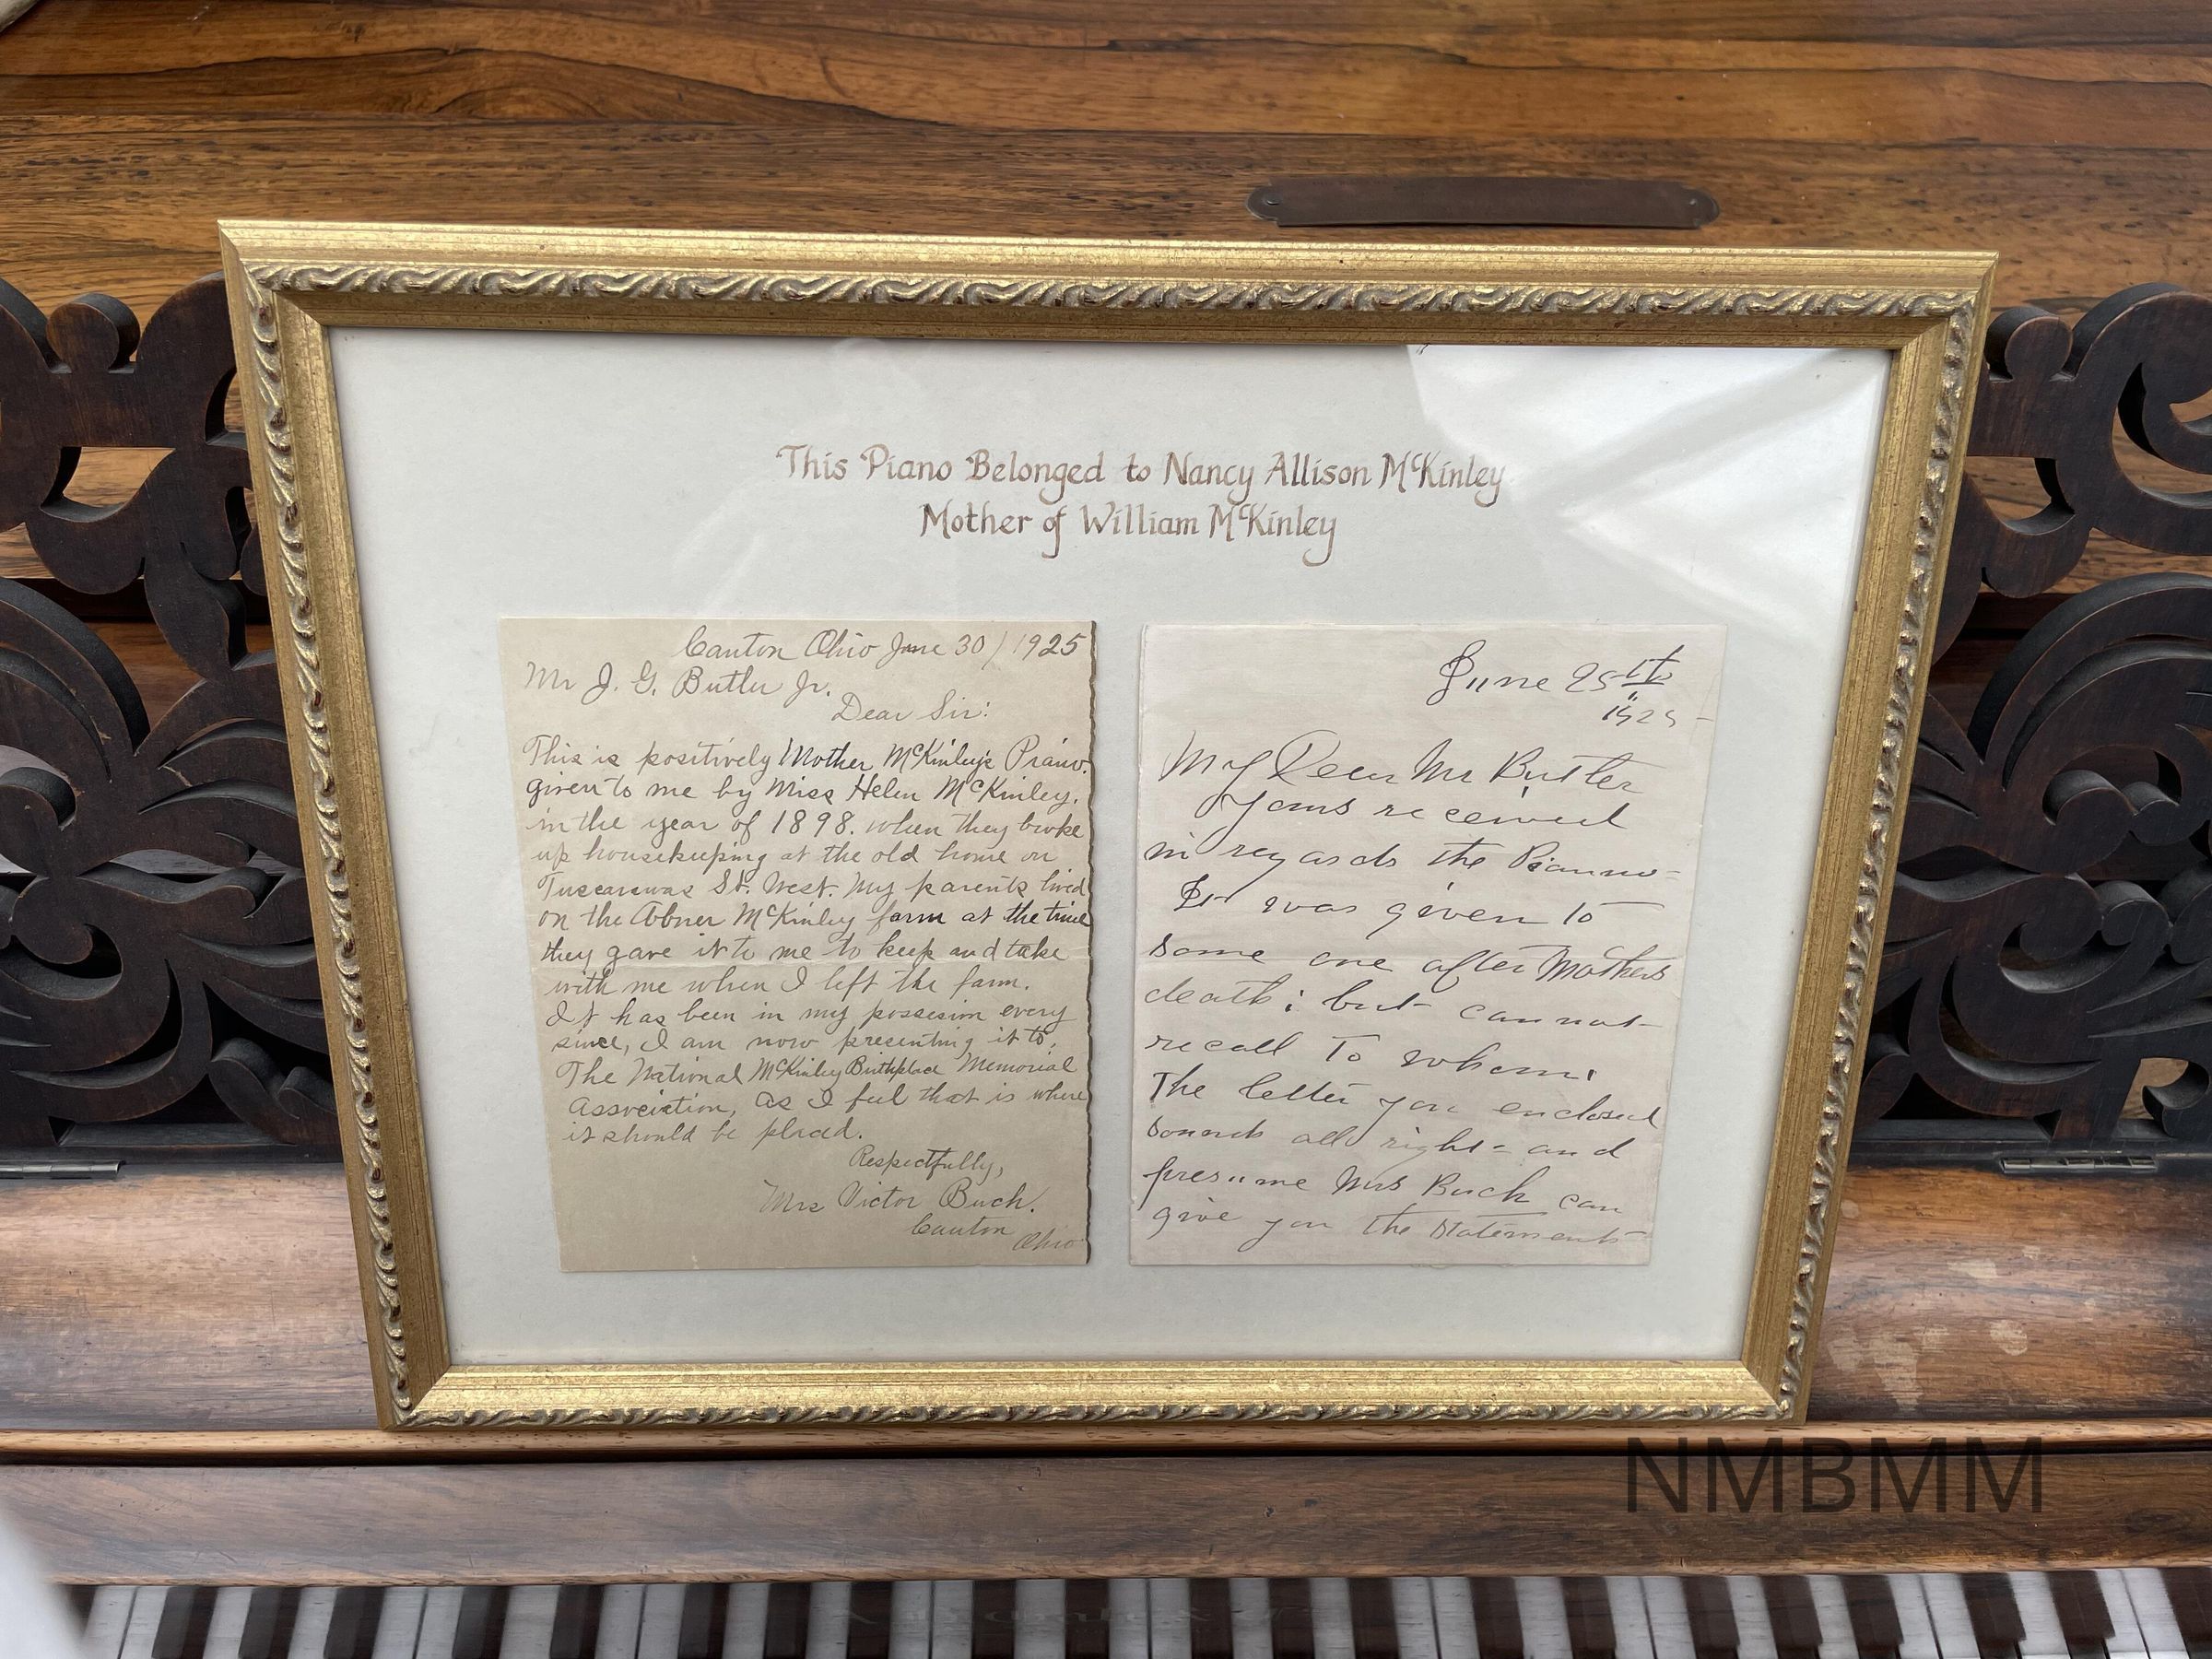 This Piano Belonged to Nancy Allison McKinley
Mother of William McKinley
Canton Ohio June 30/1925
Mr J. G. Butler Jr.
Dear Sir:
This is positively Mother McKinley's Piano.
given to me by Miss Helen McKinley.
in the year of 1898. when they broke
up housekeeping at the old home on
Tuscarawas St. West. My parents lived
on the Abner McKinley farm at the time
they gave it to me to keep and take
with me when I left the farm.
It has been in my possesion every
since, I am now presenting it to,
The National McKinley Birthplace Memorial
Association, as I feel that is where
it should be placed.
Respectfully,
Mrs Victor Buch.
Canton
Ohio
June 25th
1925-
My Dear Mr Butler
Yours received
in regards the Pianno-
It was given to
some one after Mothers
death; but cannot
recall to whom.
The letter you enclosed
sounds all right- and
presume Mrs Buch can
give you the statements
NMBMM